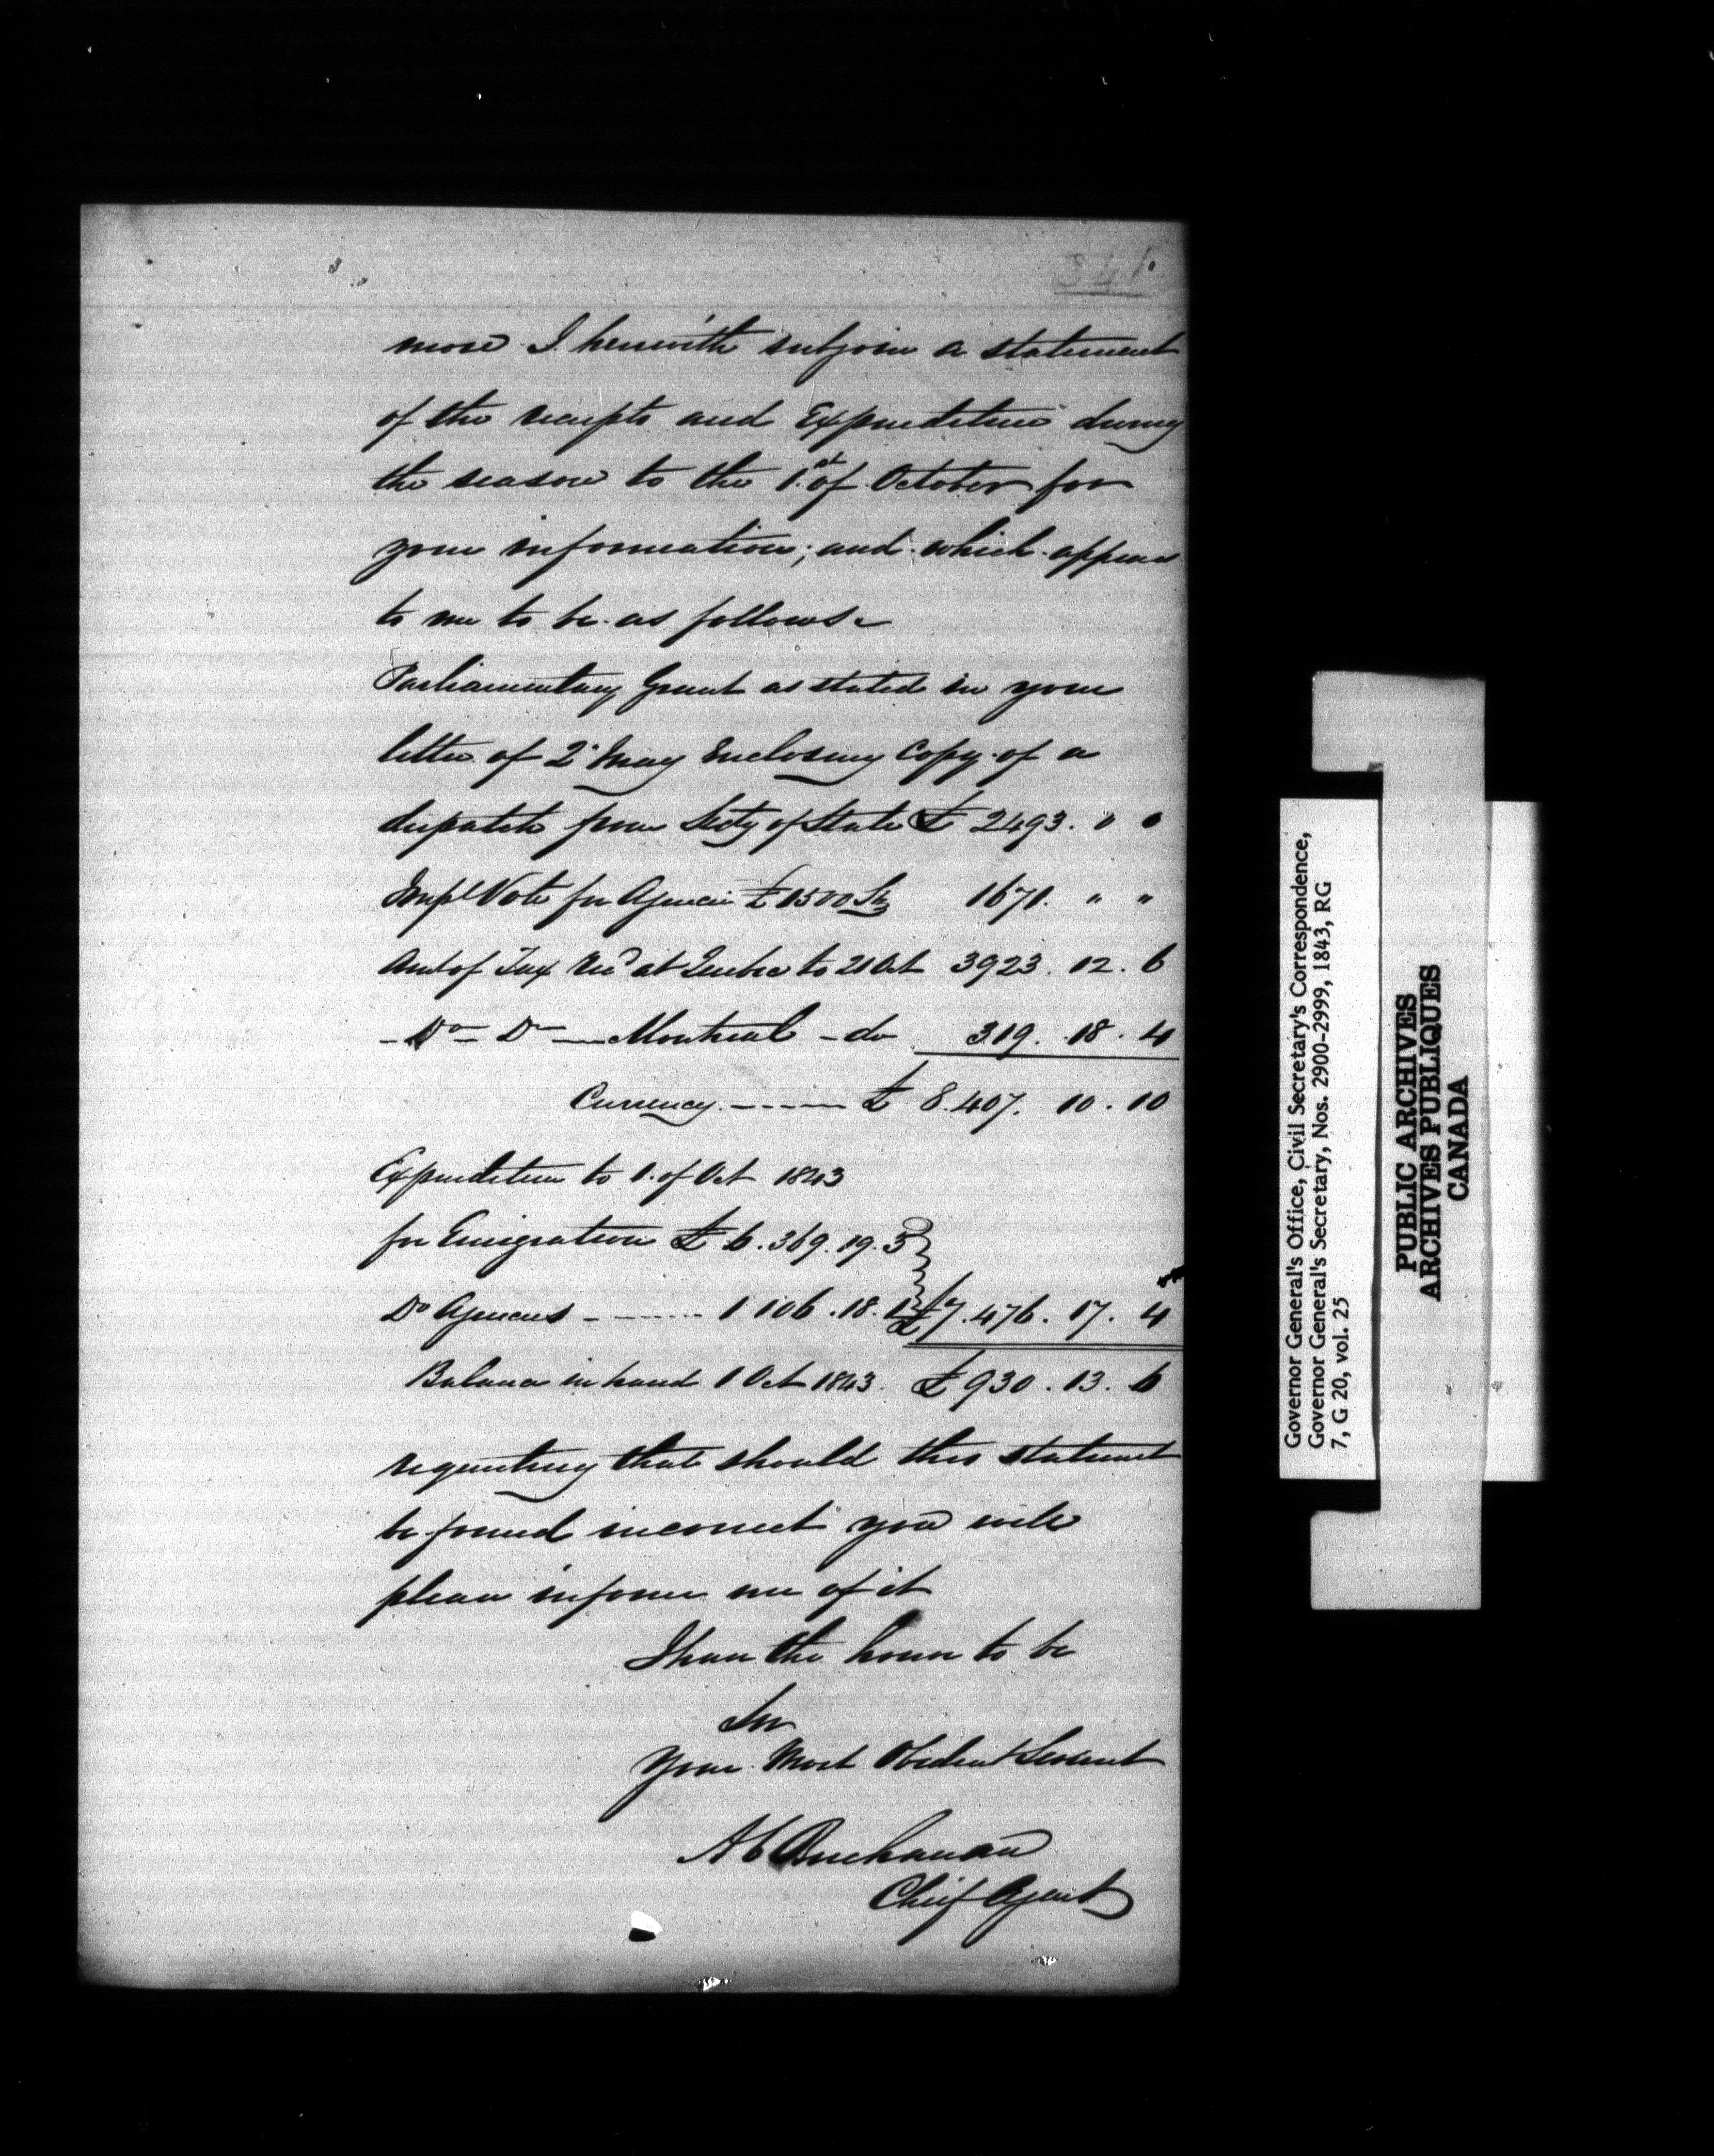 341
more I herewith subjoin a statement
of the receipts and Expenditure during
the season to the 1.st of October for
your information; and which appears
to me to be as follows.
Parliamentary Grant as stated in your
letter of 2d May Enclosing Copy of a
dispatch from Secty of State £ 2493. 0 0
Impl Vote for Agencies £1500 Stg 1671. " "
Amt of Tax Recd at Quebec to 21 Oct 3923. 12. 6
- Do - Do - Montreal - do 319. 18. 4
Currency. ---- £ 8.407. 10. 10
Expenditure to 1. of Oct 1843
for Emigration £ 6. 369. 19. 3
Do Agencies - ------ 1 106. 18. 1 £ 7.476. 17. 4
Balance in hand 1 Oct 1843. £ 930. 13. 6
requesting that should this statement
be found incorrect you will
please inform me of it
I have the honor to be
Sir
Your Most Obedient Servant
A C Buchanan
Chief Agent
Governor General's Office, Civil Secretary's Correspondence,
Governor General's Secretary, Nos. 2900-2999, 1843, RG
7, G 20, vol. 25
PUBLIC ARCHIVES
ARCHIVES PUBLIQUES
CANADA